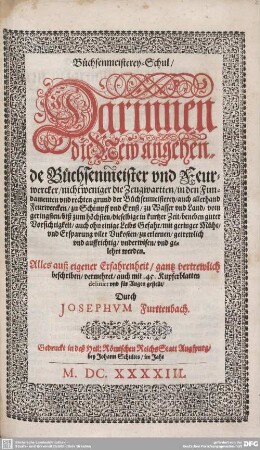 Büchsenmeisterey-Schul/
Darinnen
die New Angehen-
de Büchsenmeister vnd Feur-
wercker/ nicht weniger die Zeugwarten/ in den Fun-
damenten vnd rechten grund der Büchsenmeisterey/ auch allerhand
Feurwercken/ zu Schimpff vnd Ernst/ zu Wasser vnd Land/ vom
geringsten/ biß zum höchsten/ dieselbige in kurtzer Zeit/ beneben guter
Vorsichtigkeit/ auch ohn einige Leibs Gefahr/ mit geringer Mühe/
vnd Ersparung viler Vnkosten/ zu erlernen/ getrewlich
vnd auffrichtig/ vnderwisen/ vnd ge-
lehrt werden.
Alles auß eigner Erfahrenheit/ gantz vertrewlich
beschriben/ vermehret/ auch mit 45. Kupfferblatten
delinirt vnd für Augen gestellt/
Durch
JOSEPHVM Furttenbach.
Gedruckt in deß Heil: Römischen Reichs Statt Augspurg/
bey Johann Schultes/ im Jahr
M. DC. XXXXIII.